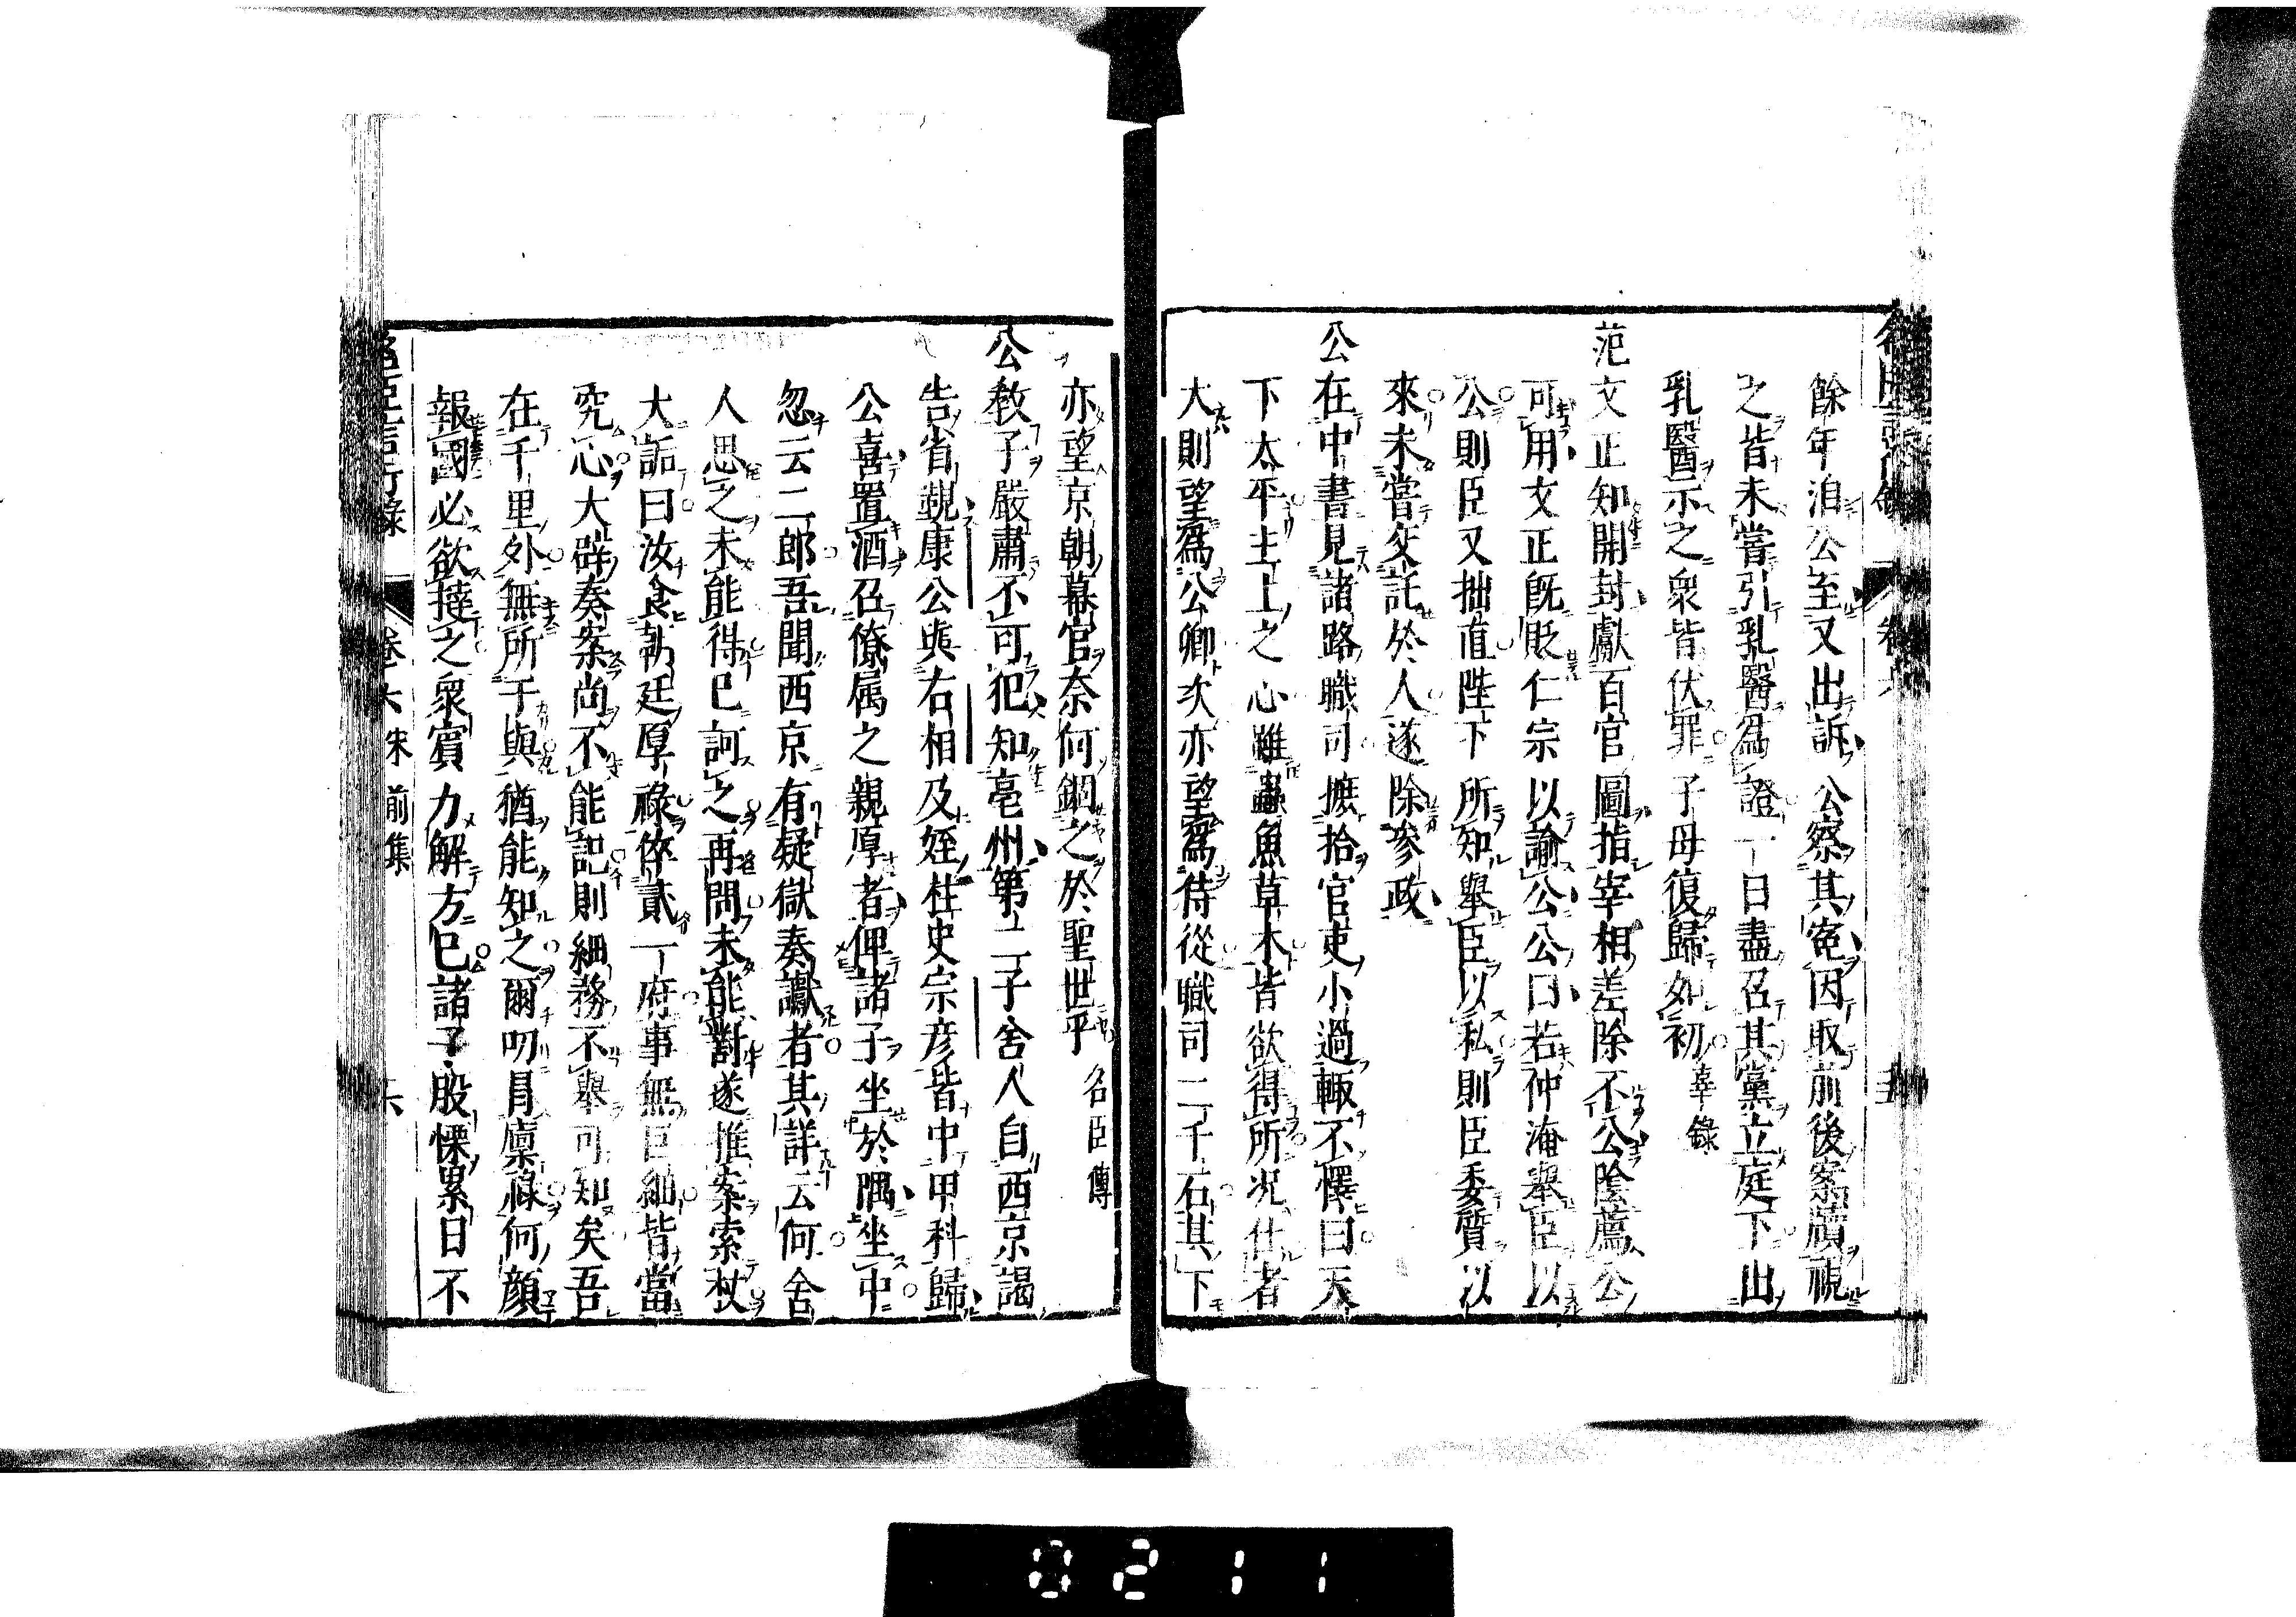 餘年洎公至又出訴公察其寃因取前後案牘視
之皆未嘗引乳醫爲證一日盡召其黨立庭下出
乳醫示之衆皆伏罪子母復歸如初 辜錄
范文正知開封獻百官圖指宰相差除不公陰薦公
可用文正旣貶仁宗以諭公公曰若仲淹舉臣以
公則臣又拙直陛下所知舉臣以私則臣委質以
來未嘗交託於人遂除參政
公在中書見諸路職司摭拾官吏小過輒不懌曰天
下太平主上之心雖蟲魚草木皆欲得所况仕者
大則望爲公卿次亦望爲待從職司二千石其下
亦望京朝幕官奈何錮之於聖世乎 名臣傳
公敎子嚴肅不可犯知亳州第二子舍人自西京謁
告省覲康公與右相及姪柱史宗彦皆中甲科歸
公喜置酒召僚属之親厚者俾諸子坐於隅坐中
忽云二郎吾聞西京有疑獄奏讞者其詳云何舍
人思之未能得已訶之再問未能對遂推案索杖
大詬曰汝食朝廷厚祿倅貳一府事無巨細皆當
究心大辟奏案尚不能記則細務不舉可知矣吾
在千里外無所干與猶能知之爾叨冐廩祿何顔
報國必欲撻之衆賓力解方已諸子股慄累日不
名臣言行錄 卷六 宋前集 六